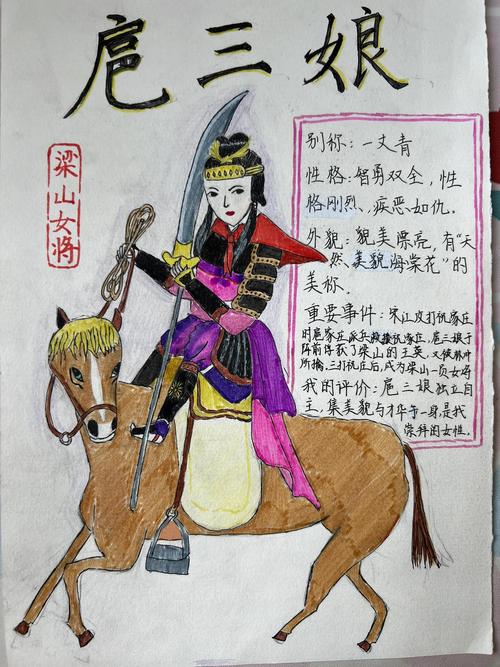 扈三娘
梁山女将
别称：一丈青
性格：智勇双全，性
格刚烈、疾恶如仇．
外貌：貌美漂亮，有“天
然美貌海棠花”的
美称．
重要事件：宋江攻打祝家庄
时扈家庄派兵救援祝家庄，扈三娘于
阵前俘获了梁山的王英，又被林冲
所擒，三打祝庄后，成为梁山一员女将
我的评价：扈三娘独立自
主，集美貌与才华于一身，是我
崇拜的女性．